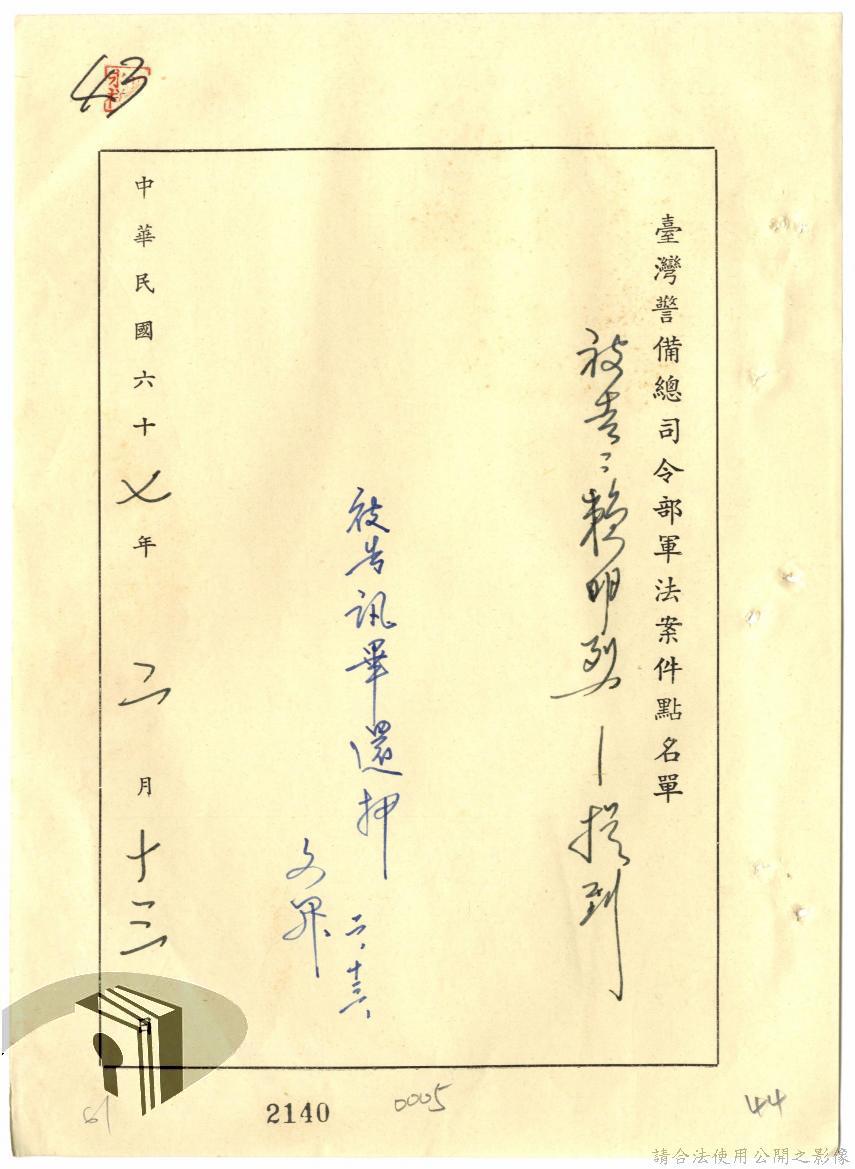 43
臺灣警備總司令部軍法案件點名單
被告：賴明烈－提到
被告訊畢還押
二、十三、
中華民國六十七年二月十三日
61
2140
0005
44
請合法使用公開之影像